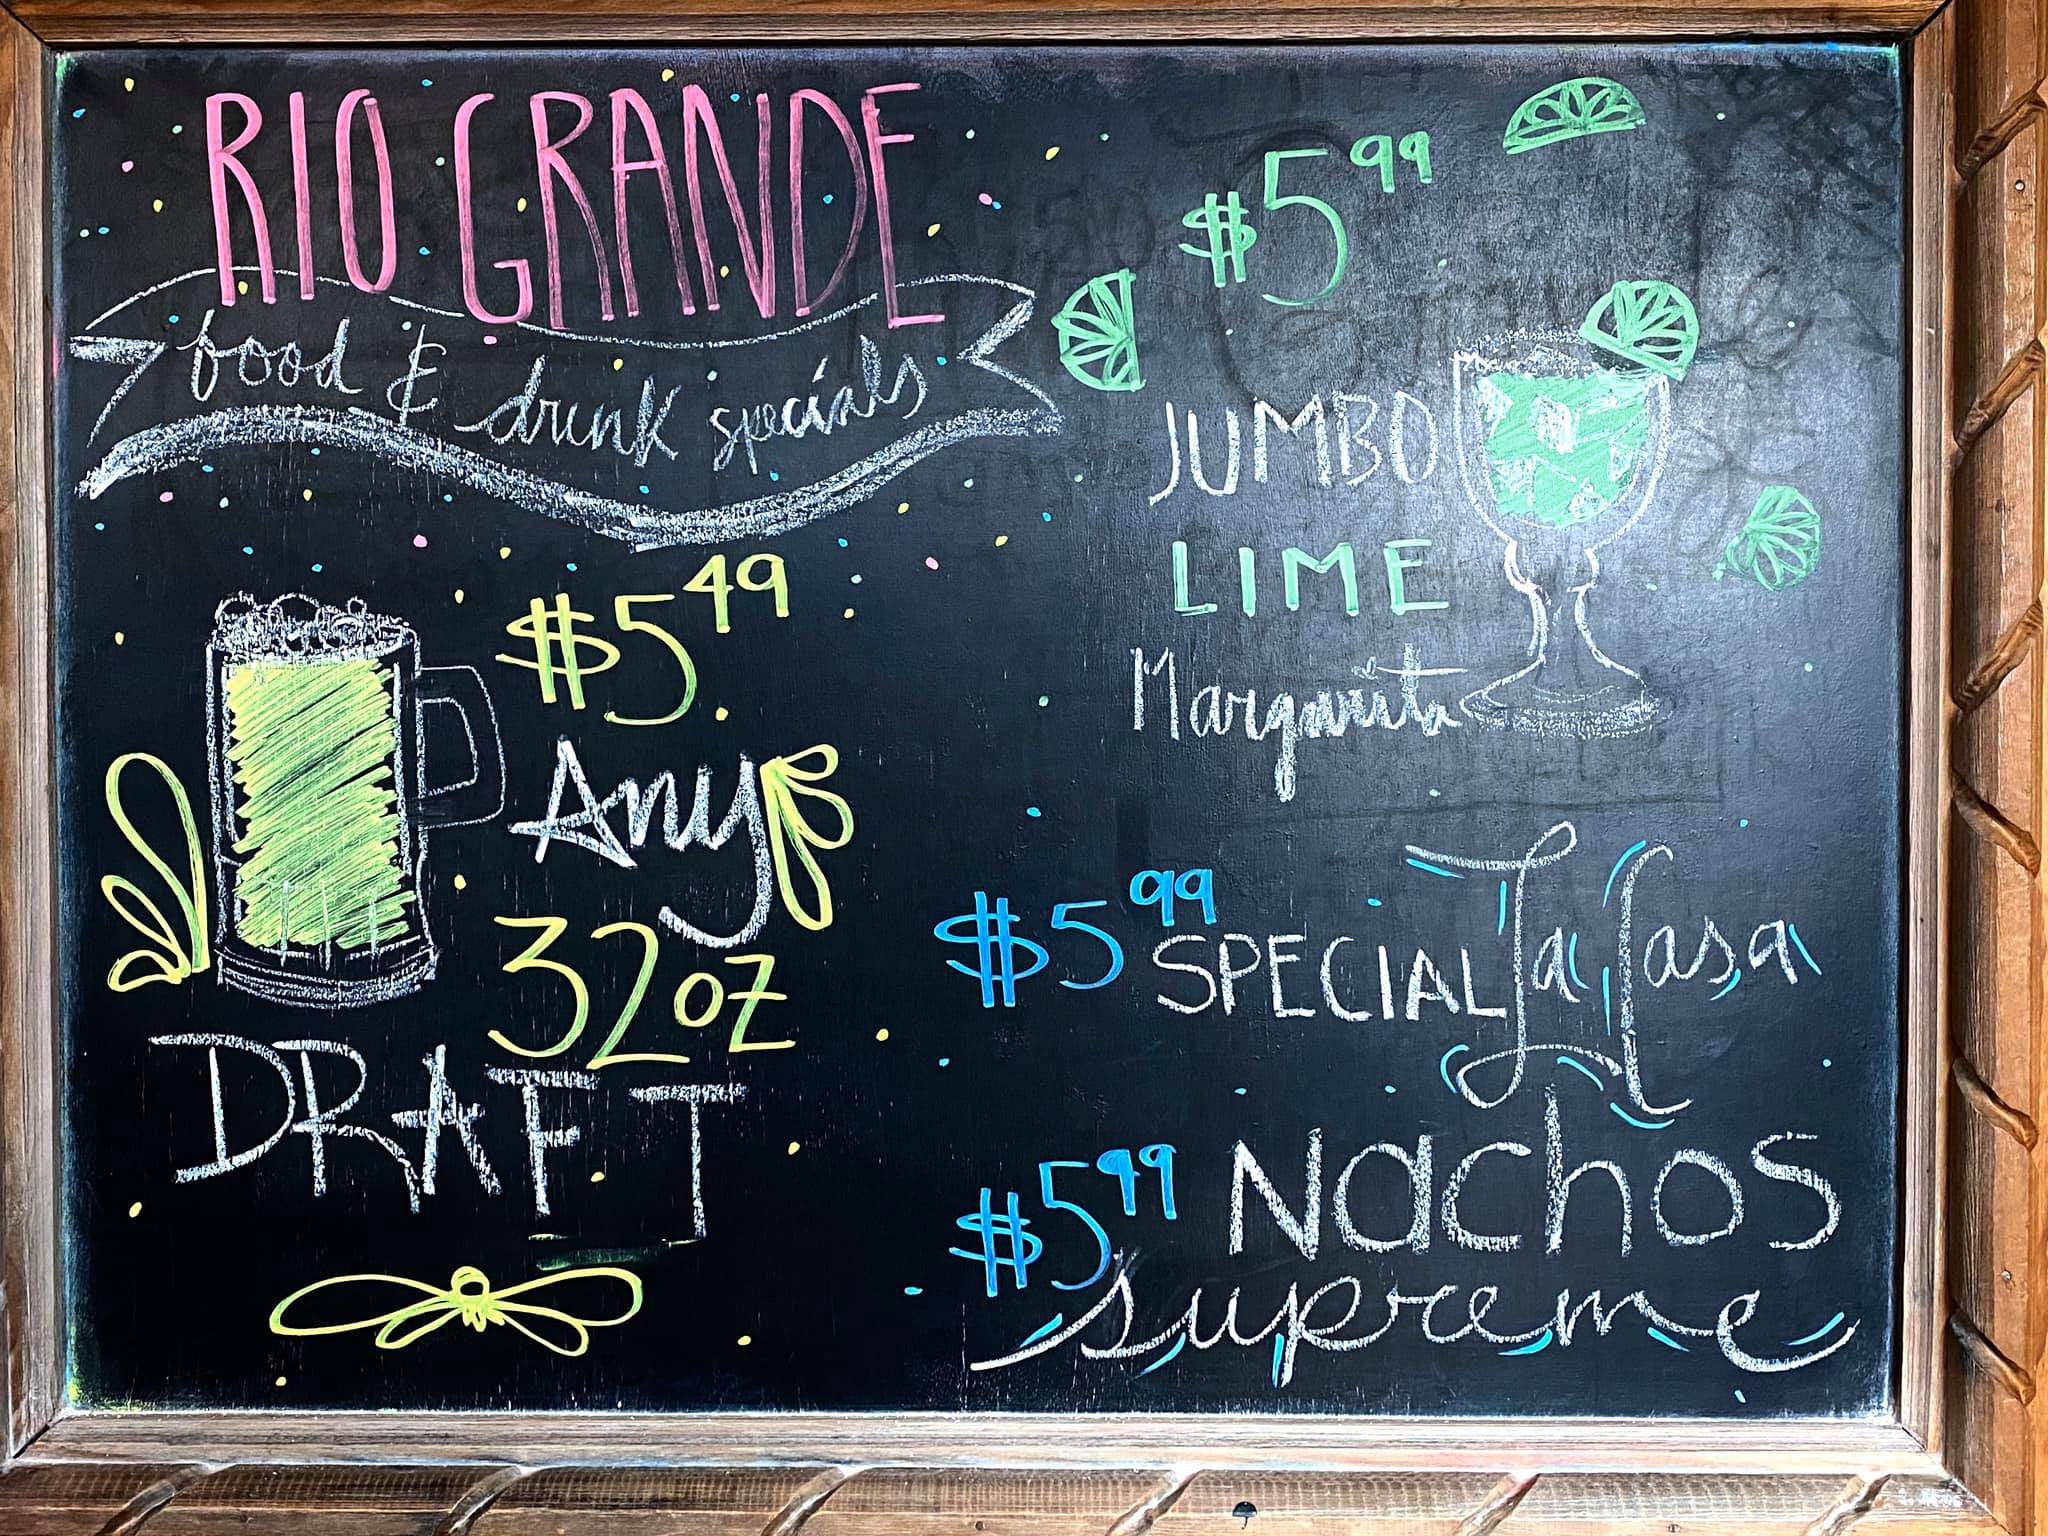 RIO GRANDE
food & drink specials
$5.49
Any
32oz
DRAFT
$5.99
JUMBO
LIME
Margarita
$5.99 SPECIAL La Casa
$5.99 Nachos
supreme